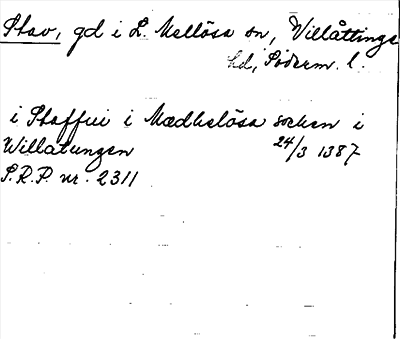 Stav, gd i L. Mellösa sn, Villåttinge
hd, Söderm. l.
i Staffui i Mædhelösa socken i
Willatungen 24/3 1387
S.R.P. nr. 2311